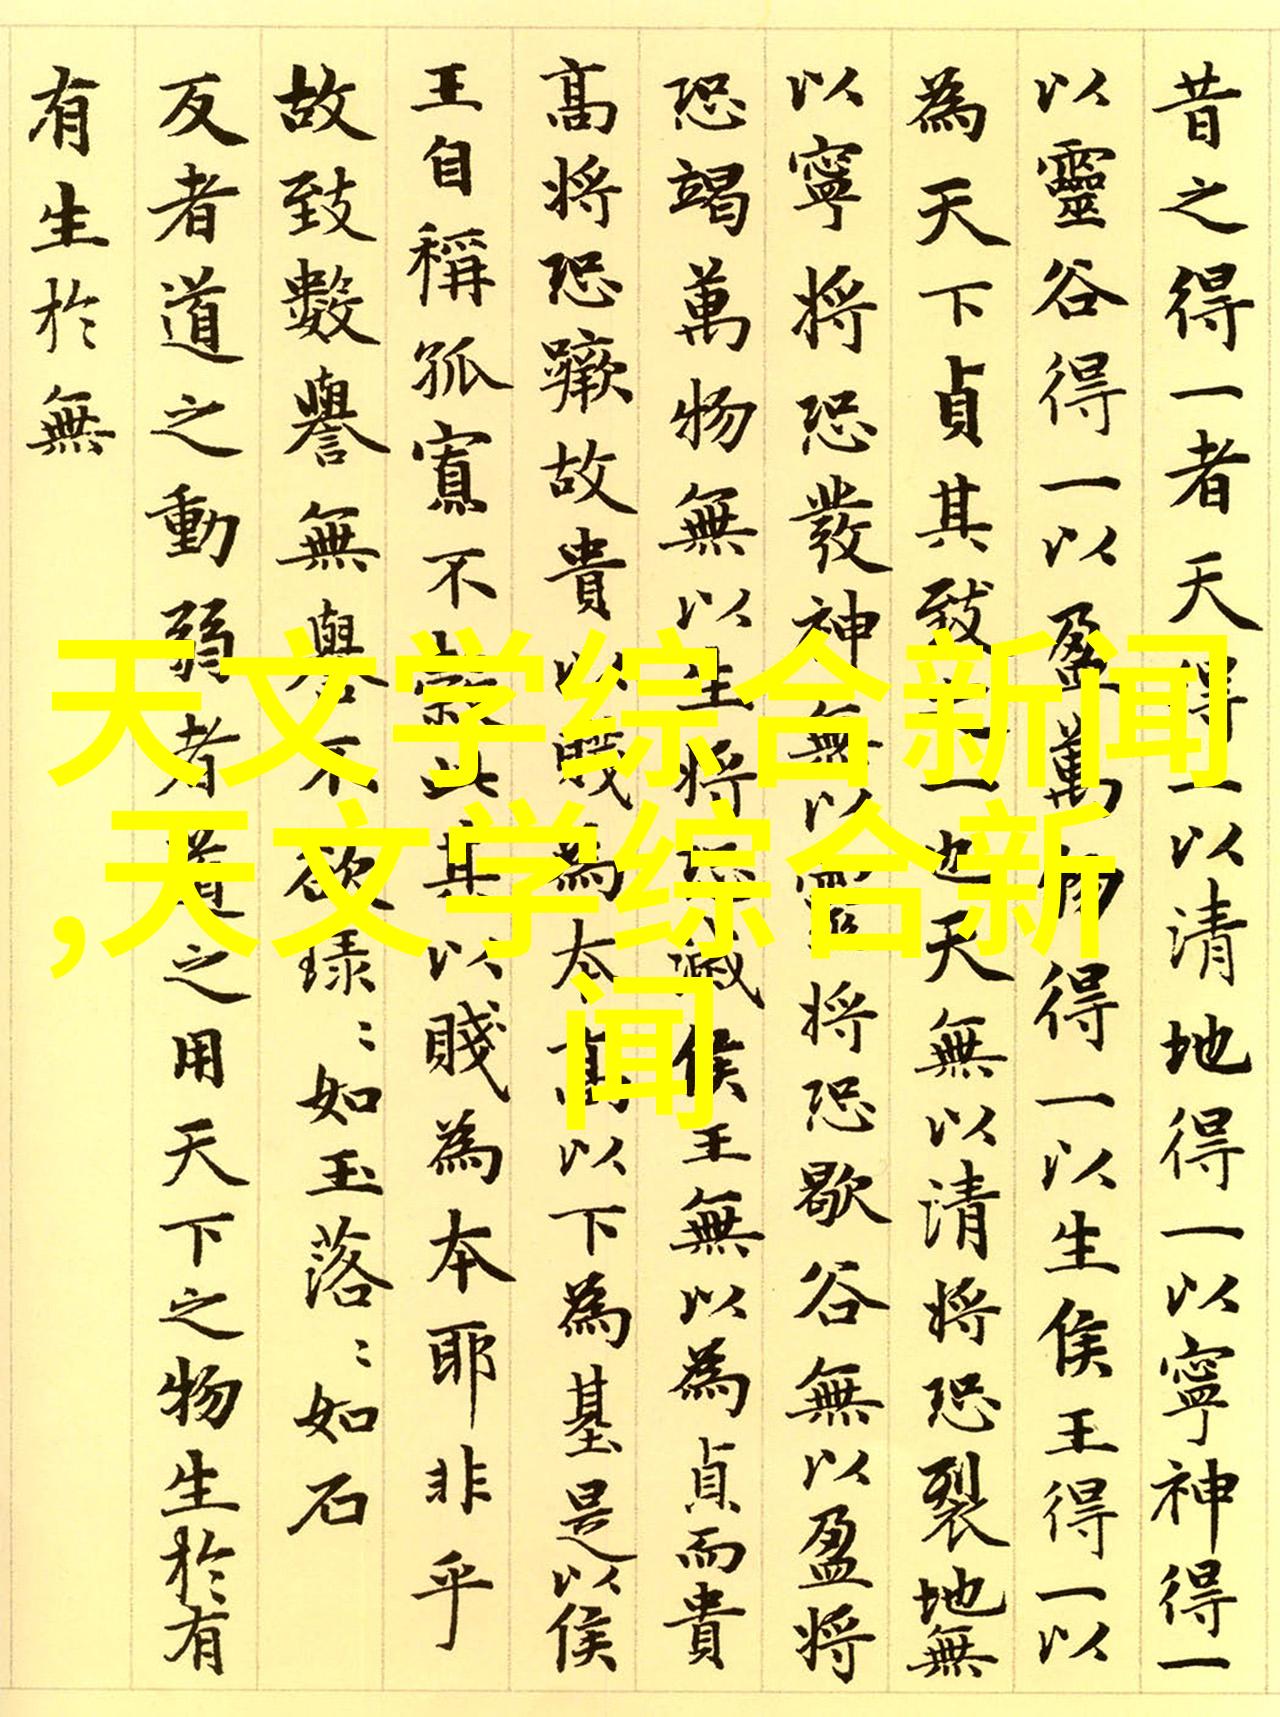 昔之得一者天得一以清地得一以寧神得一
以靈谷得一以盈萬物得一以生侯王得一以
為天下貞其致之一也天無以清將恐裂地無
以寧將恐發神無以靈將恐歇谷無以盈將
恐竭萬物無以生將恐滅侯王無以為貞而貴
高將恐蹶故貴以賤為本高以下為基是以侯
王自稱孤寡不穀此其以賤為本耶非乎
故致數譽無譽不欲琭〻如玉落〻如石
反者道之動弱者道之用天下之物生於有
有生於無
天文学综合新闻
,天文学综合新
闻